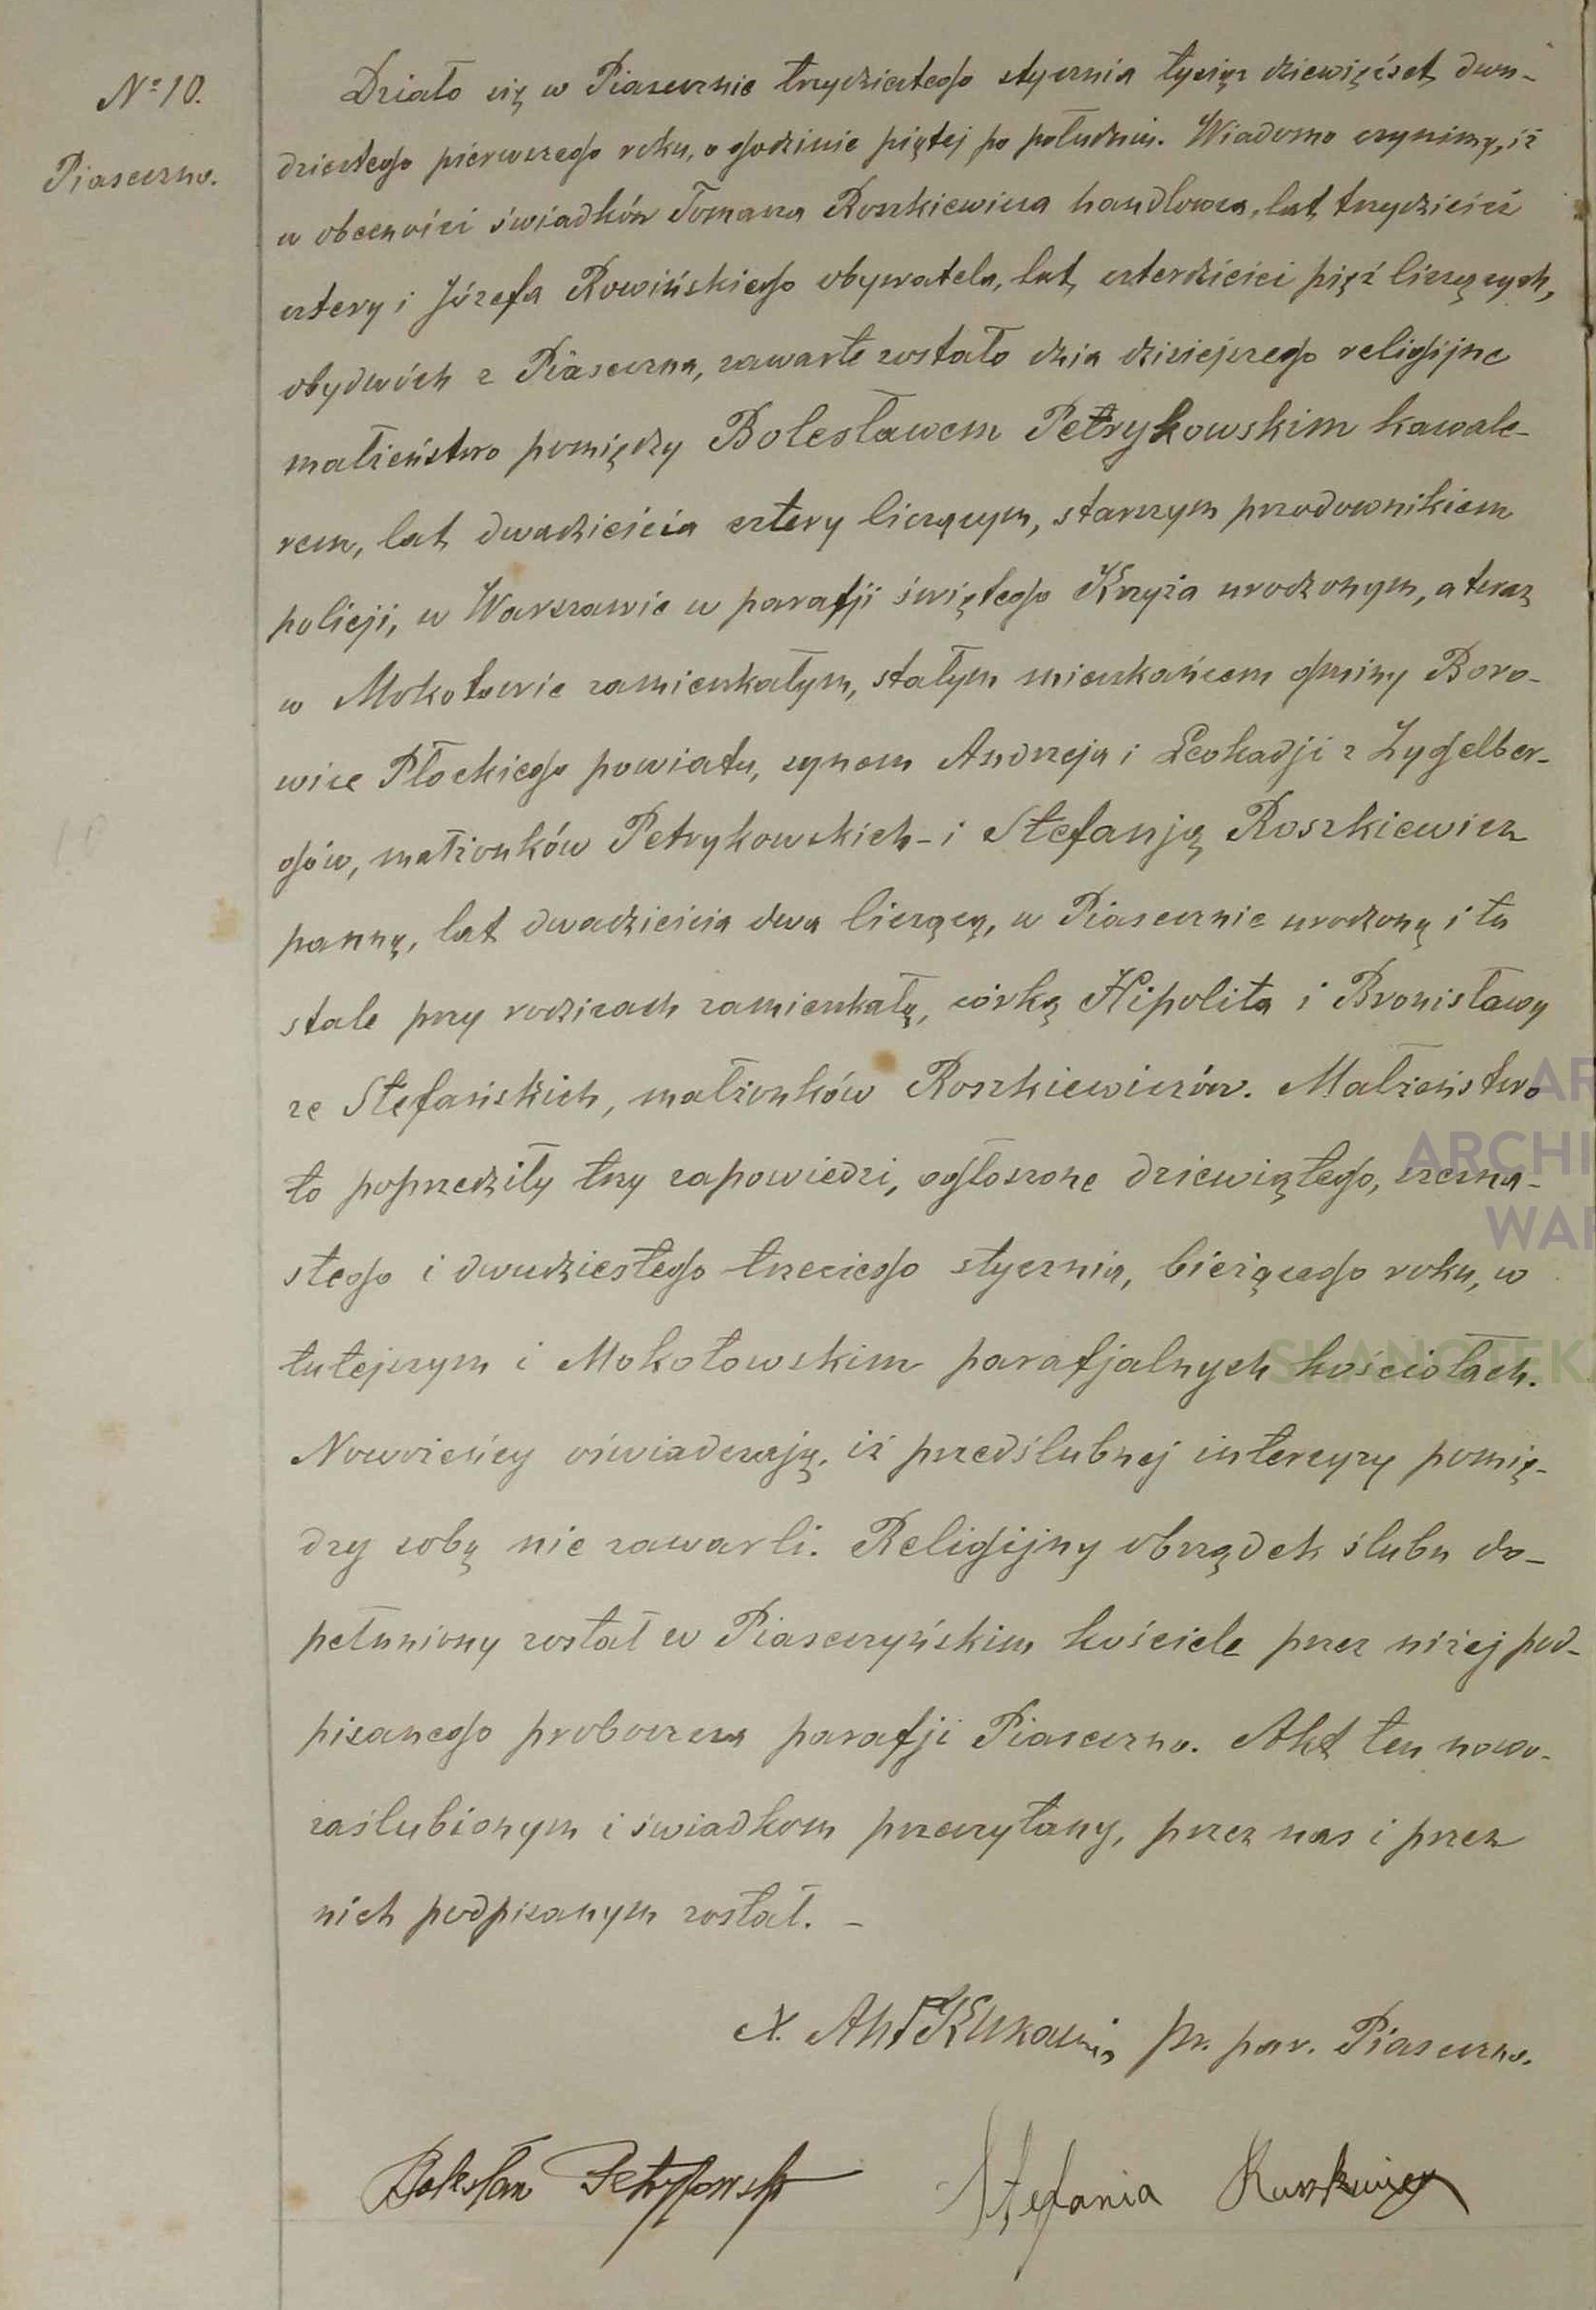 No 10.
Piaseczno.
Działo się w Piasecznie trzydziestego stycznia tysiąc dziewięćset dwu-
dziestego pierwszego roku, o godzinie piątej po południu. Wiadomo czynimy, iż
w obecności świadków Tomasza Roszkiewicza handlowca, lat trzydzieści
cztery i Józefa Rowińskiego obywatela, lat czterdzieści pięć liczących,
obydwóch z Piaseczna, zawarte zostało dnia dzisiejszego religijne
małżeństwo pomiędzy Bolesławem Petrykowskim kawale-
rem, lat dwadzieścia cztery liczącym, starszym przodownikiem
policji, w Warszawie w parafji świętego Krzyża urodzonym, a teraz
w Mokotowie zamieszkałym, stałym mieszkańcem gminy Boro-
wice Płockiego powiatu, synem Andrzeja i Leokadji z Zygelber-
gów, małżonków Petrykowskich - i Stefanją Roszkiewicz
panną, lat dwadzieścia dwa liczącą, w Piasecznie urodzoną i tu
stale przy rodzicach zamieszkałą, córką Hipolita i Bronisławy
ze Stefańskich, małżonków Roszkiewiczów. Małżeństwo
to poprzedziły trzy zapowiedzi, ogłoszone dziewiątego, szesna-
stego i dwudziestego trzeciego stycznia, bieżącego roku, w
tutejszym i Mokotowskim parafjalnych kościołach.
Nowożeńcy oświadczają, iż przedślubnej intercyzy pomię-
dzy sobą nie zawarli. Religijny obrządek ślubu do-
pełniony został w Piaseczyńskim kościele przez niżej pod-
pisanego proboszcza parafji Piaseczno. Akt ten nowo-
zaślubionym i świadkom przeczytany, przez nas i przez
nich podpisanym został. -
X. Ant pr. par. Piaseczno.
Bolesław Petrykowski Stefania Roszkiewicz
AR
ARCHI
WAR
SKANOTEKA